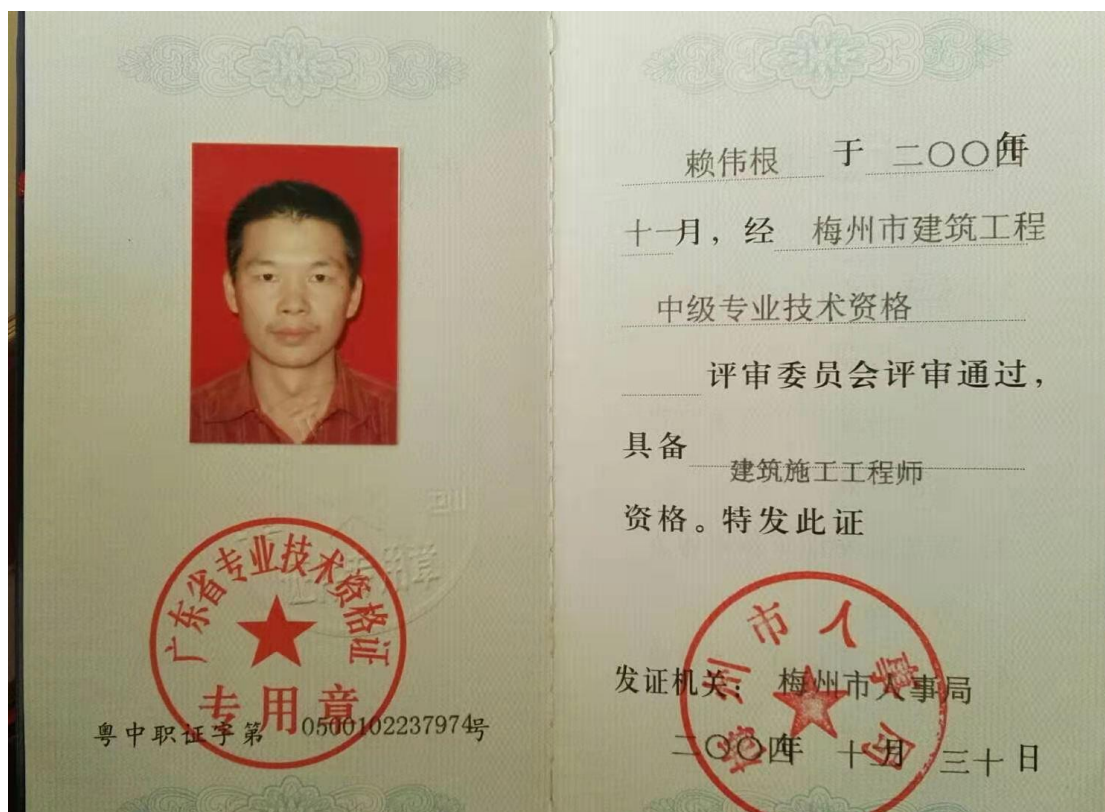 广东省专业技术资格证
专用章
粤中职证字第 0500102237974号
赖伟根 于 二〇〇四年
十一月，经 梅州市建筑工程
中级专业技术资格
评审委员会评审通过，
具备 建筑施工工程师
资格。特发此证
梅州市人事局
发证机关： 梅州市人事局
二〇〇四年 十二月 三十日